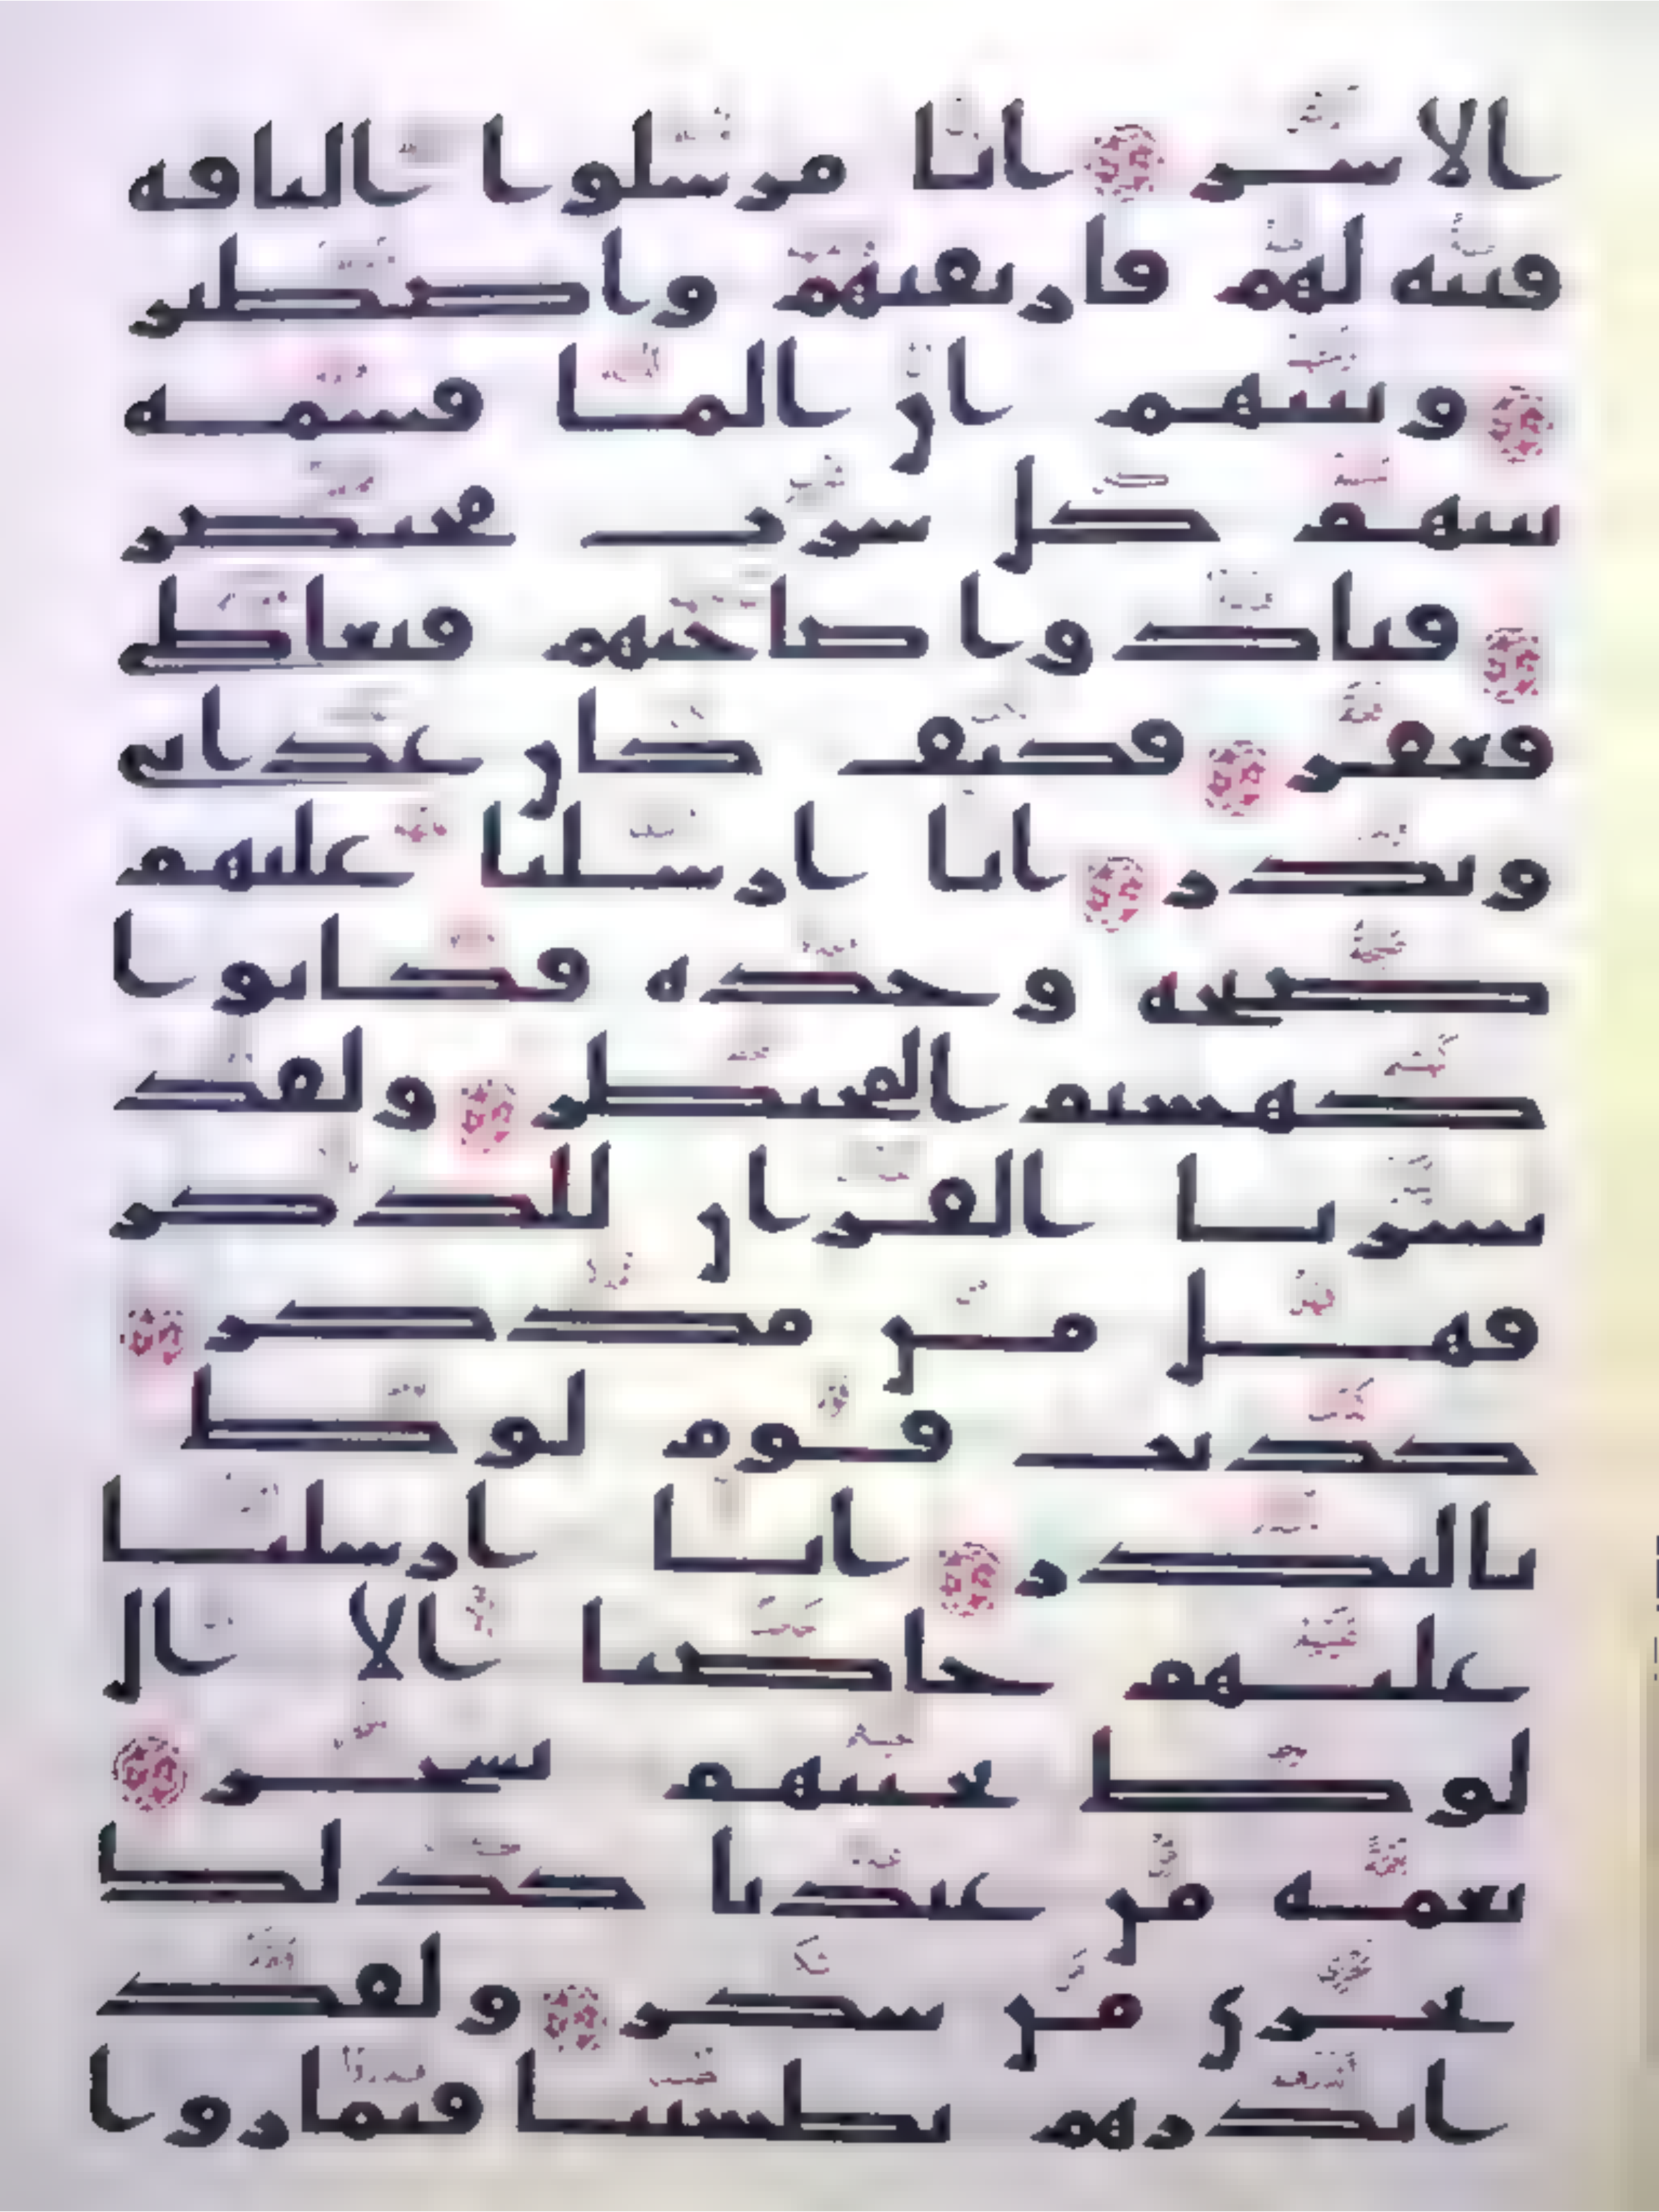 الاشر انا مرسلوا الناقه
فتنه لهم فارتقبهم واصطبر
ونبئهم ان الما قسمه
بينهم كل شرب محتضر
فنادوا صاحبهم فتعاطى
فعقر فكيف كان عذابي
ونذر انا ارسلنا عليهم
صيحه وحده فكانوا
كهشيم المحتظر ولقد
يسرنا القران للذكر
فهل من مدكر
كذبت قوم لوط
بالنذر انا ارسلنا
عليهم حاصبا الا ال
لوط نجينهم بسحر
نعمه من عندنا كذلك
نجزي من شكر ولقد
انذرهم بطشتنا فتماروا